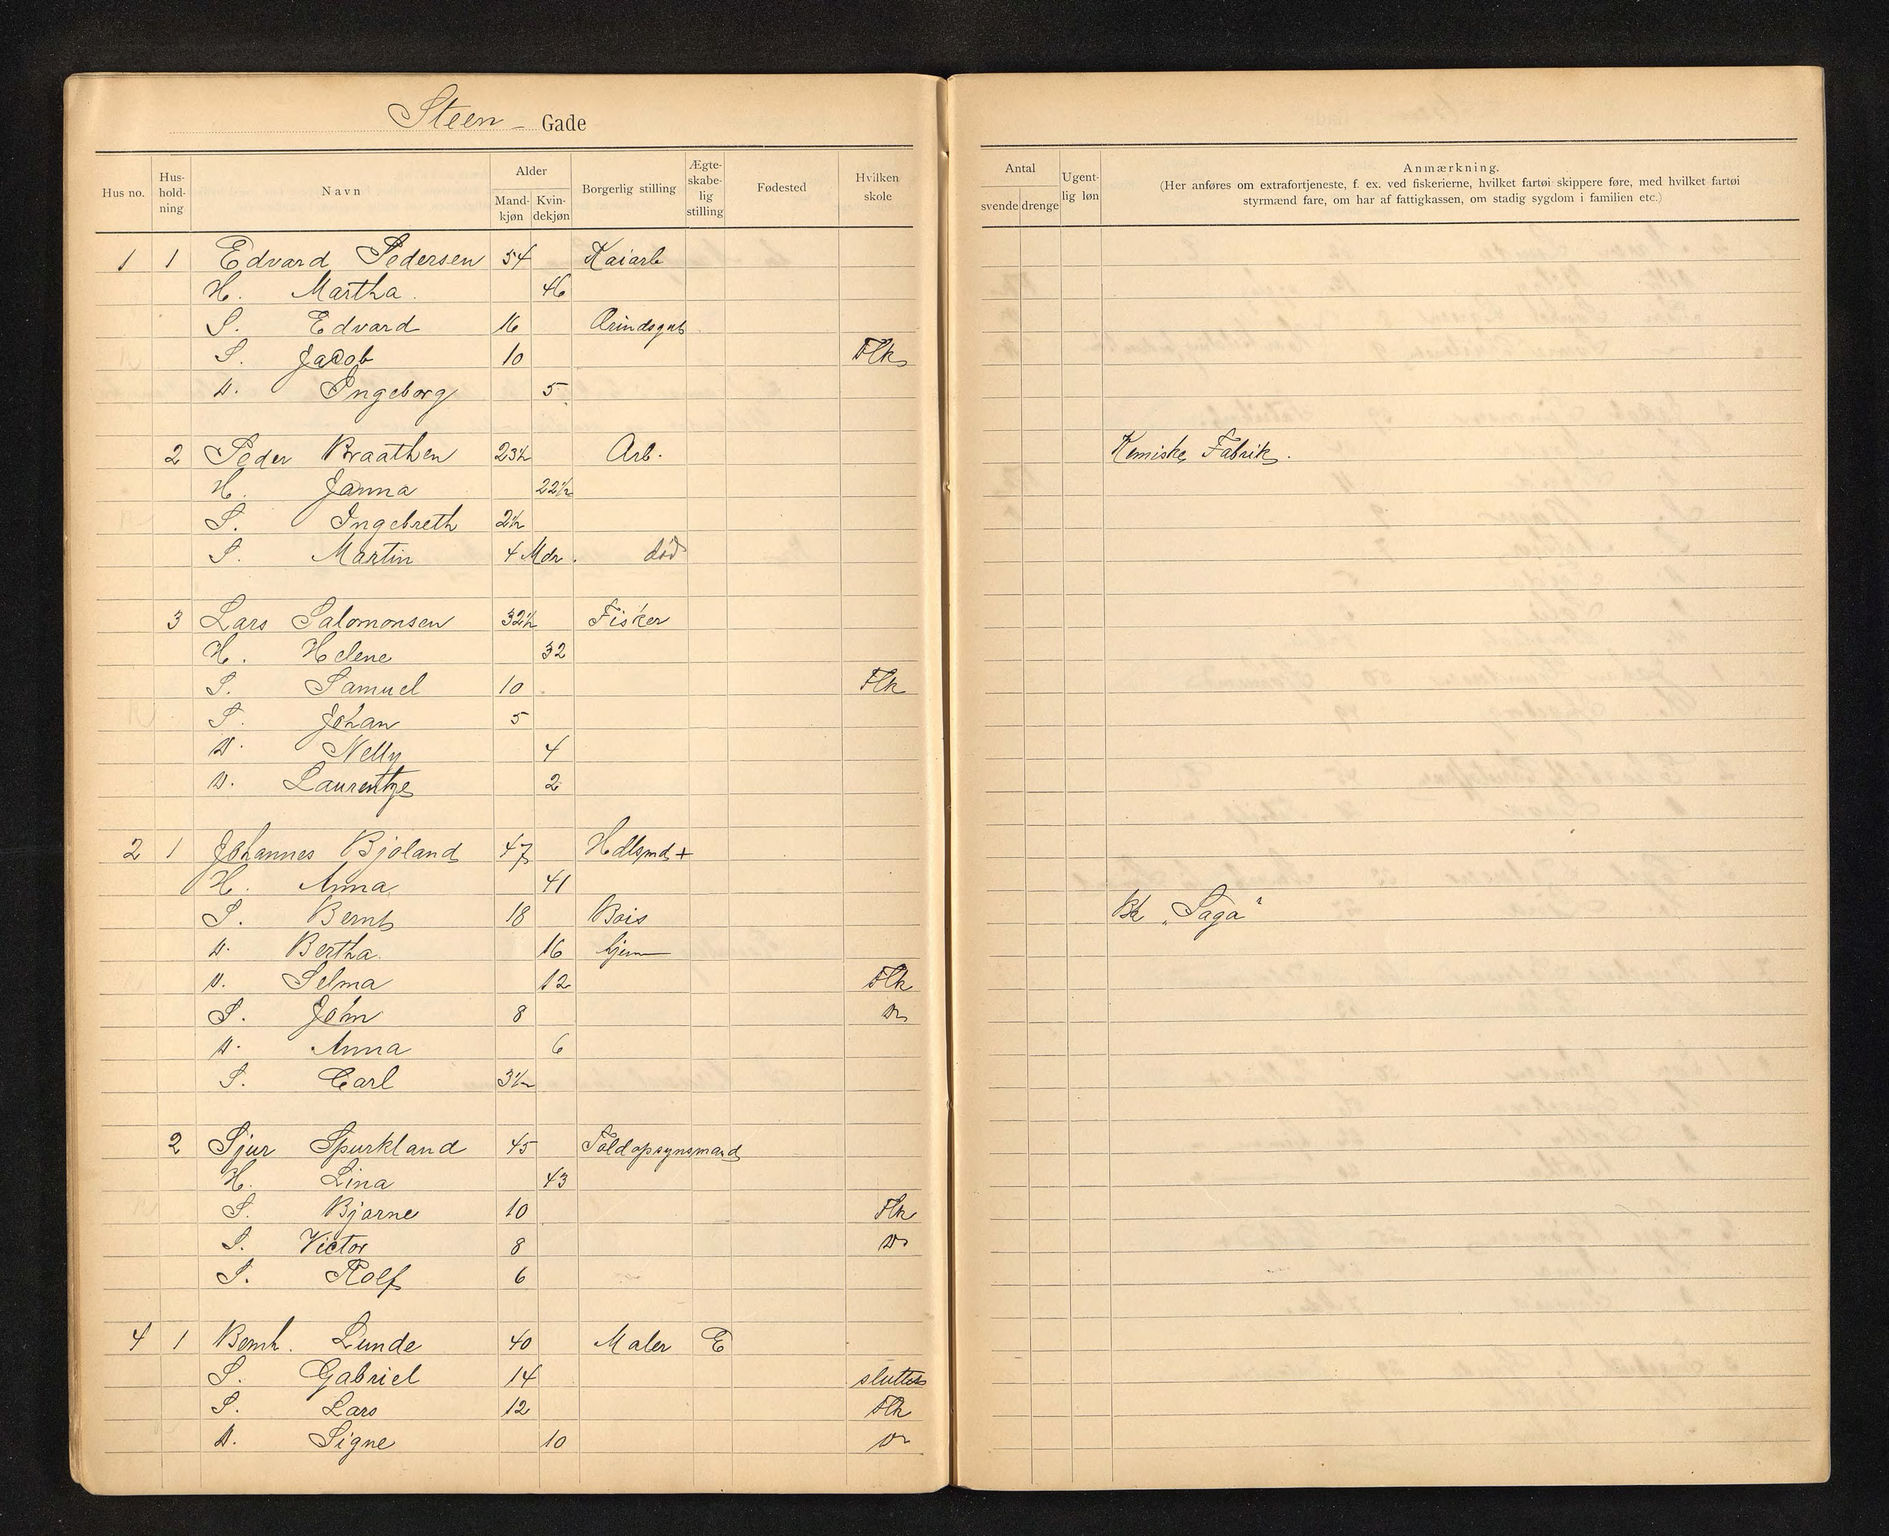 Steen - Gade
Hus no. Hus-hold-ning Navn Alder Mand-kjøn Kvin-dekjøn Borgerlig stilling Ægte-skabe-lig stilling Fødested Hvilken skole
Antal svende drenge Ugent-lig løn Anmærkning.
(Her anføres om extrafortjeneste, f. ex. ved fiskerierne, hvilket fartøi skippere føre, med hvilket fartøi
styrmænd fare, om har af fattigkassen, om stadig sygdom i familien etc.)
1 1 Edvard Pedersen 54 Kaiarb
H. Martha 46
S. Edvard 16 Ærindsgut
S. Jacob 10 Flk
D. Ingeborg 5
2 Peder Braathen 23½ Arb. Kemiske Fabrik.
H. Janna 22½
S. Ingebreth 2½
S. Martin 4 Mdr. død
3 Lars Salomonsen 32½ Fisker
H. Helene 32
S. Samuel 10 Flk
S. Johan 5
D. Nelly 4
D. Laurentze 2
2 1 Johannes Bjøland 47 Hdlsmd +
H. Anna 41
S. Bernt 18 Bois Bk „Saga"
D. Bertha 16 hjem
D. Selma 12 Flk
S. John 8 Do
D. Anna 6
S. Carl 3½
2 Sjur Spurkland 45 Toldopsynsmand
H. Lina 43
S. Bjarne 10 Flk
S. Victor 8 Do
S. Rolf 6
4 1 Bernh. Lunde 40 Maler E
S. Gabriel 14 sluttet
S. Lars 12 Flk
D. Signe 10 Do